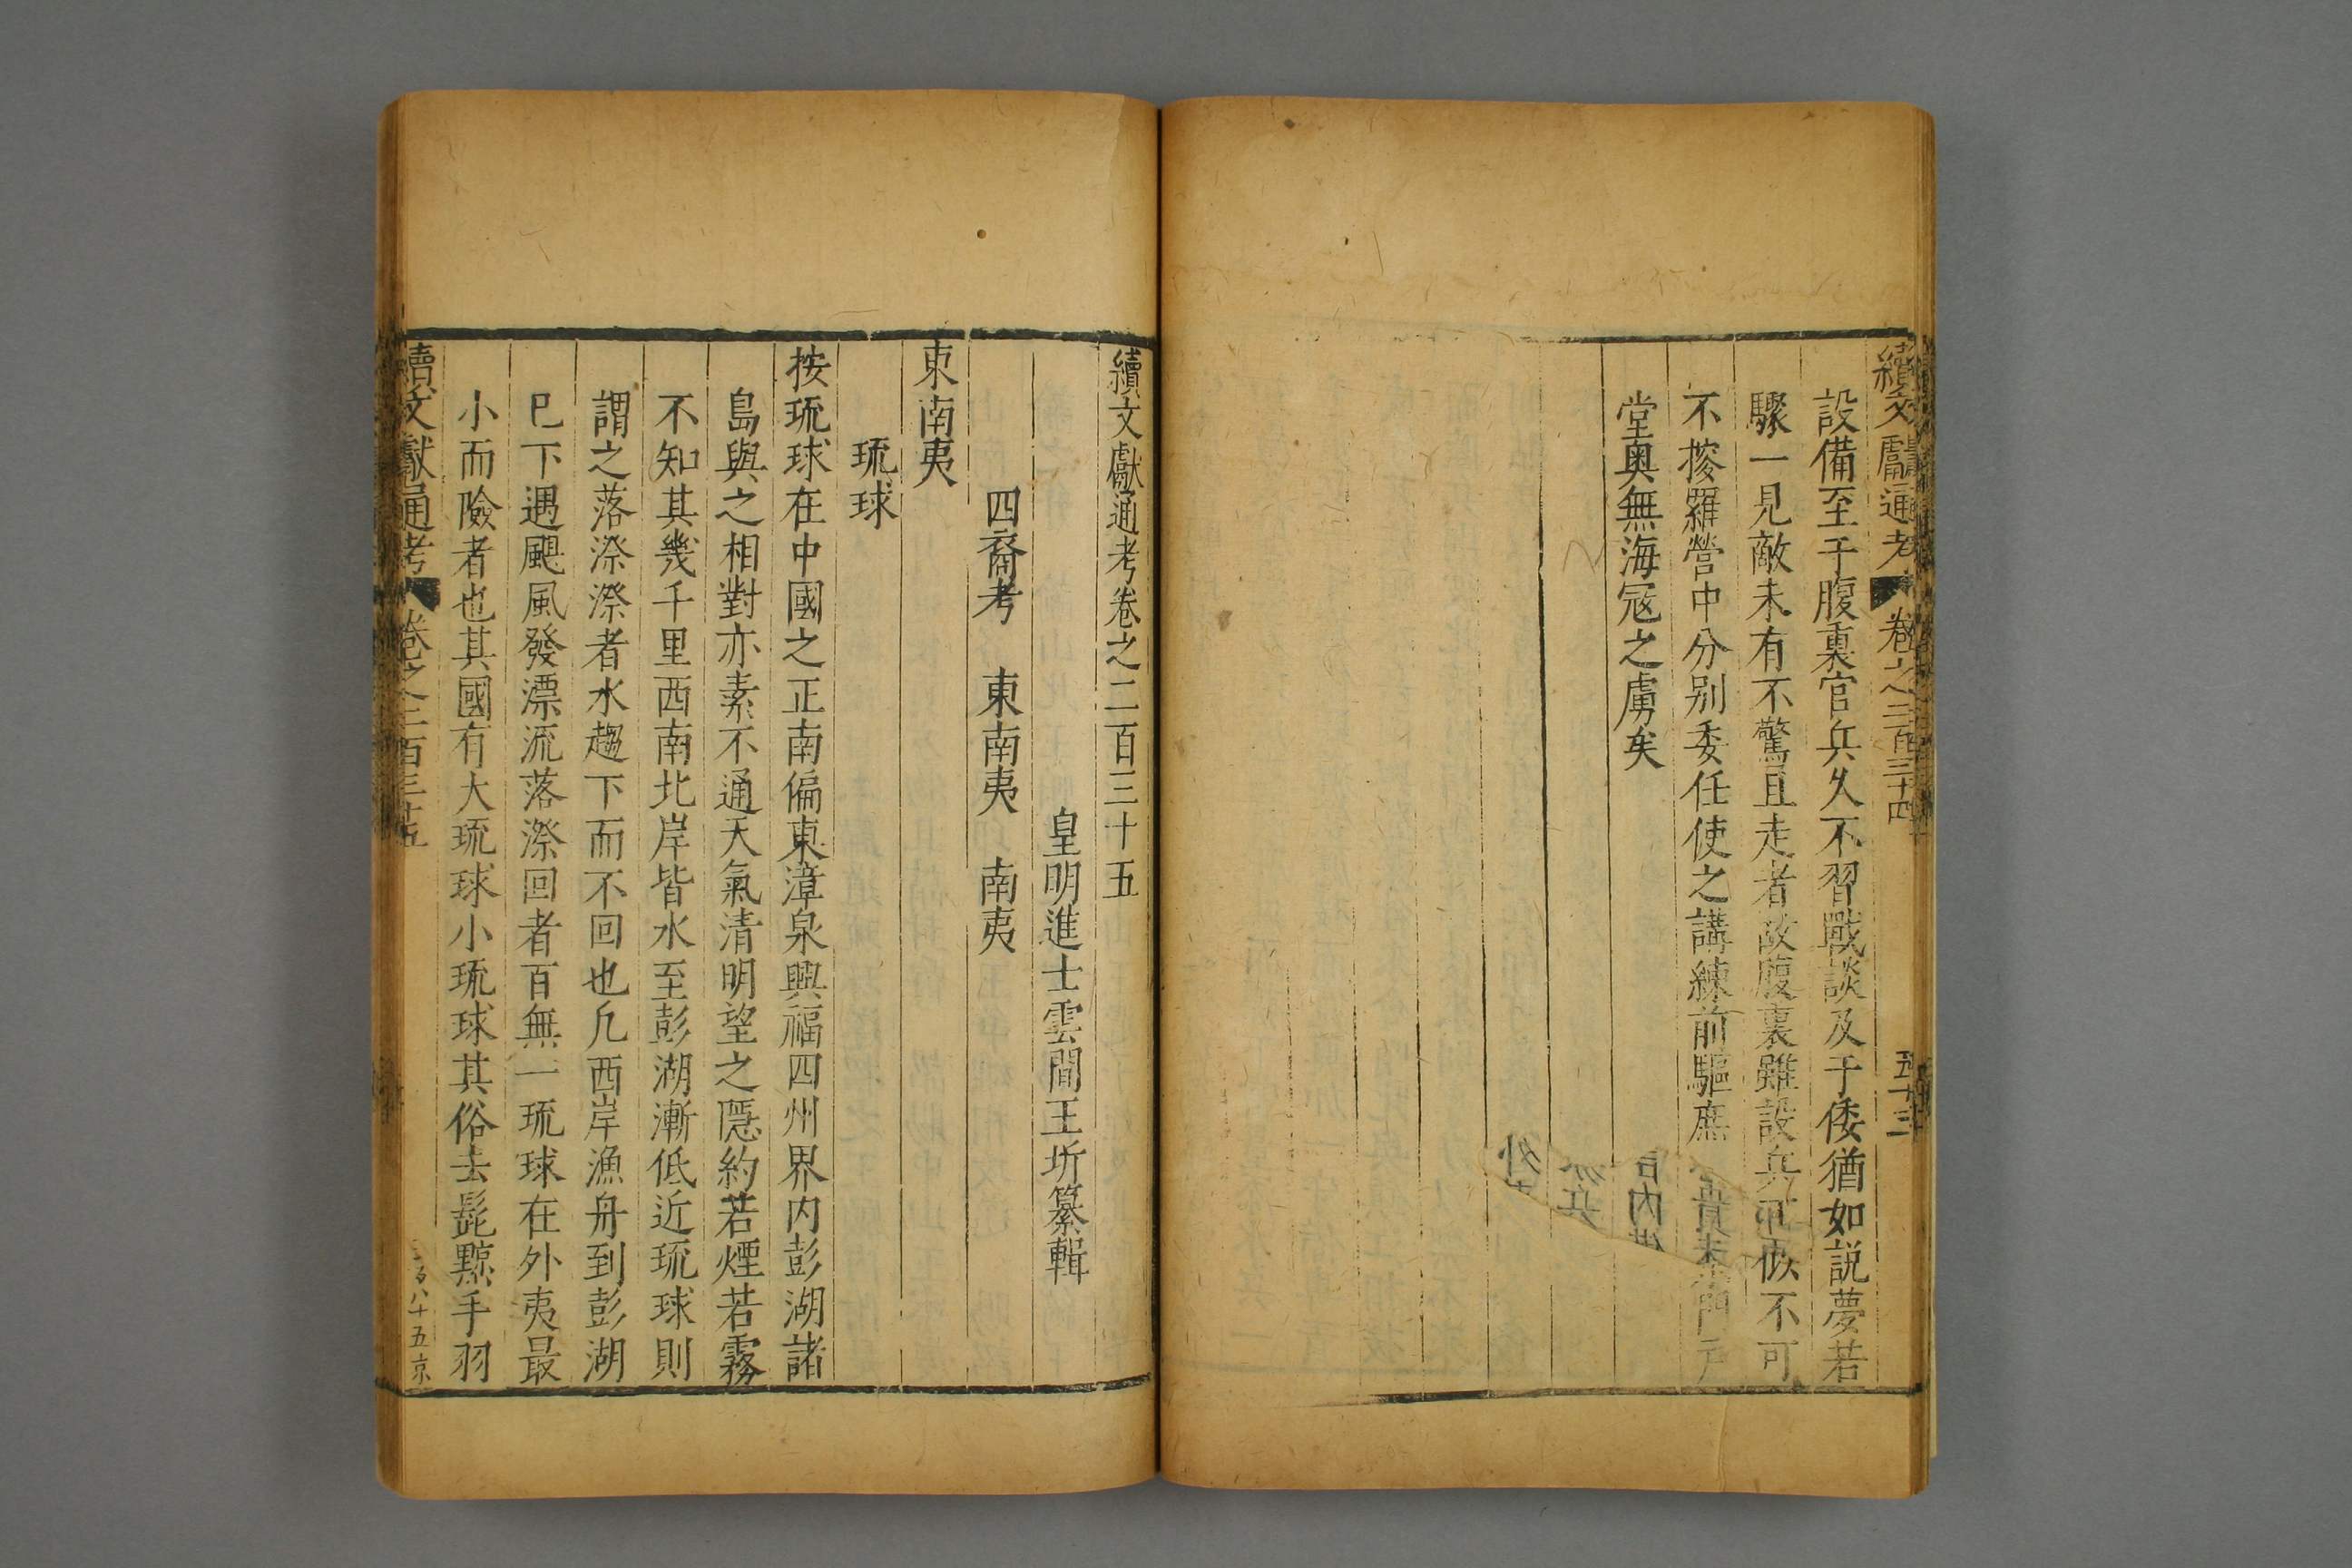 續文獻通考 卷之二百三十四 五十三
設備至于腹裏官兵久不習戰談及于倭猶如説夢若
驟一見敵未有不驚且走者故腹裏雖設兵 似不可
不於羅營中分别委任使之講練前驅庶 門戸
堂奥無海冦之虜矣
續文獻通考卷之二百三十五
皇明進士雲間王圻纂輯
四裔考 東南夷 南夷
東南夷
琉球
按琉球在中國之正南偏東漳泉興福四州界内彭湖諸
島與之相對亦素不通天氣清明望之隱約若煙若霧
不知其幾千里西南北岸皆水至彭湖漸低近琉球則
謂之落漈漈者水趨下而不回也凡西岸漁舟到彭湖
巳下遇颶風發漂流落漈回者百無一琉球在外夷最
小而險者也其國有大琉球小琉球其俗去髭黥手羽
續文獻通考 卷之二百三十五